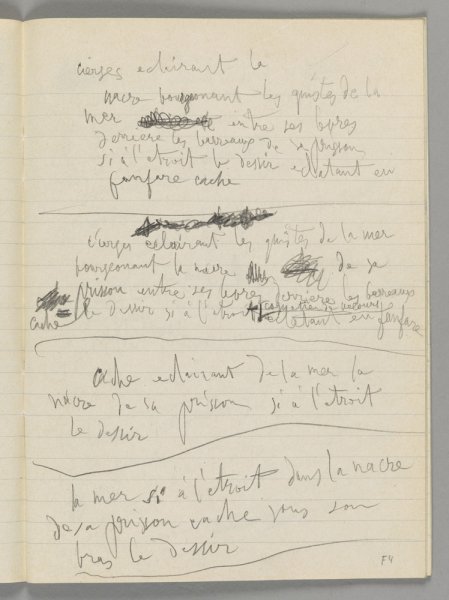 cierges eclairant le
nacre bourgeonant les quêtes de la
mer entre ses levres
derriere les barreaux de sa prison
si à l'etroit le dessir eclatant en
fanfare cache
cierges eclairant les quêtes de la mer
bourgeonant la nacre de sa
prison entre ses levres derriere les barreaux
le dessir si à l'etroit eclatant en fanfare
cache
cache eclairant de la mer la
nacre de sa prison si à l'etroit
le dessir
la mer si à l'etroit dans la nacre
de sa prison cache sous son
bras le dessir
F4